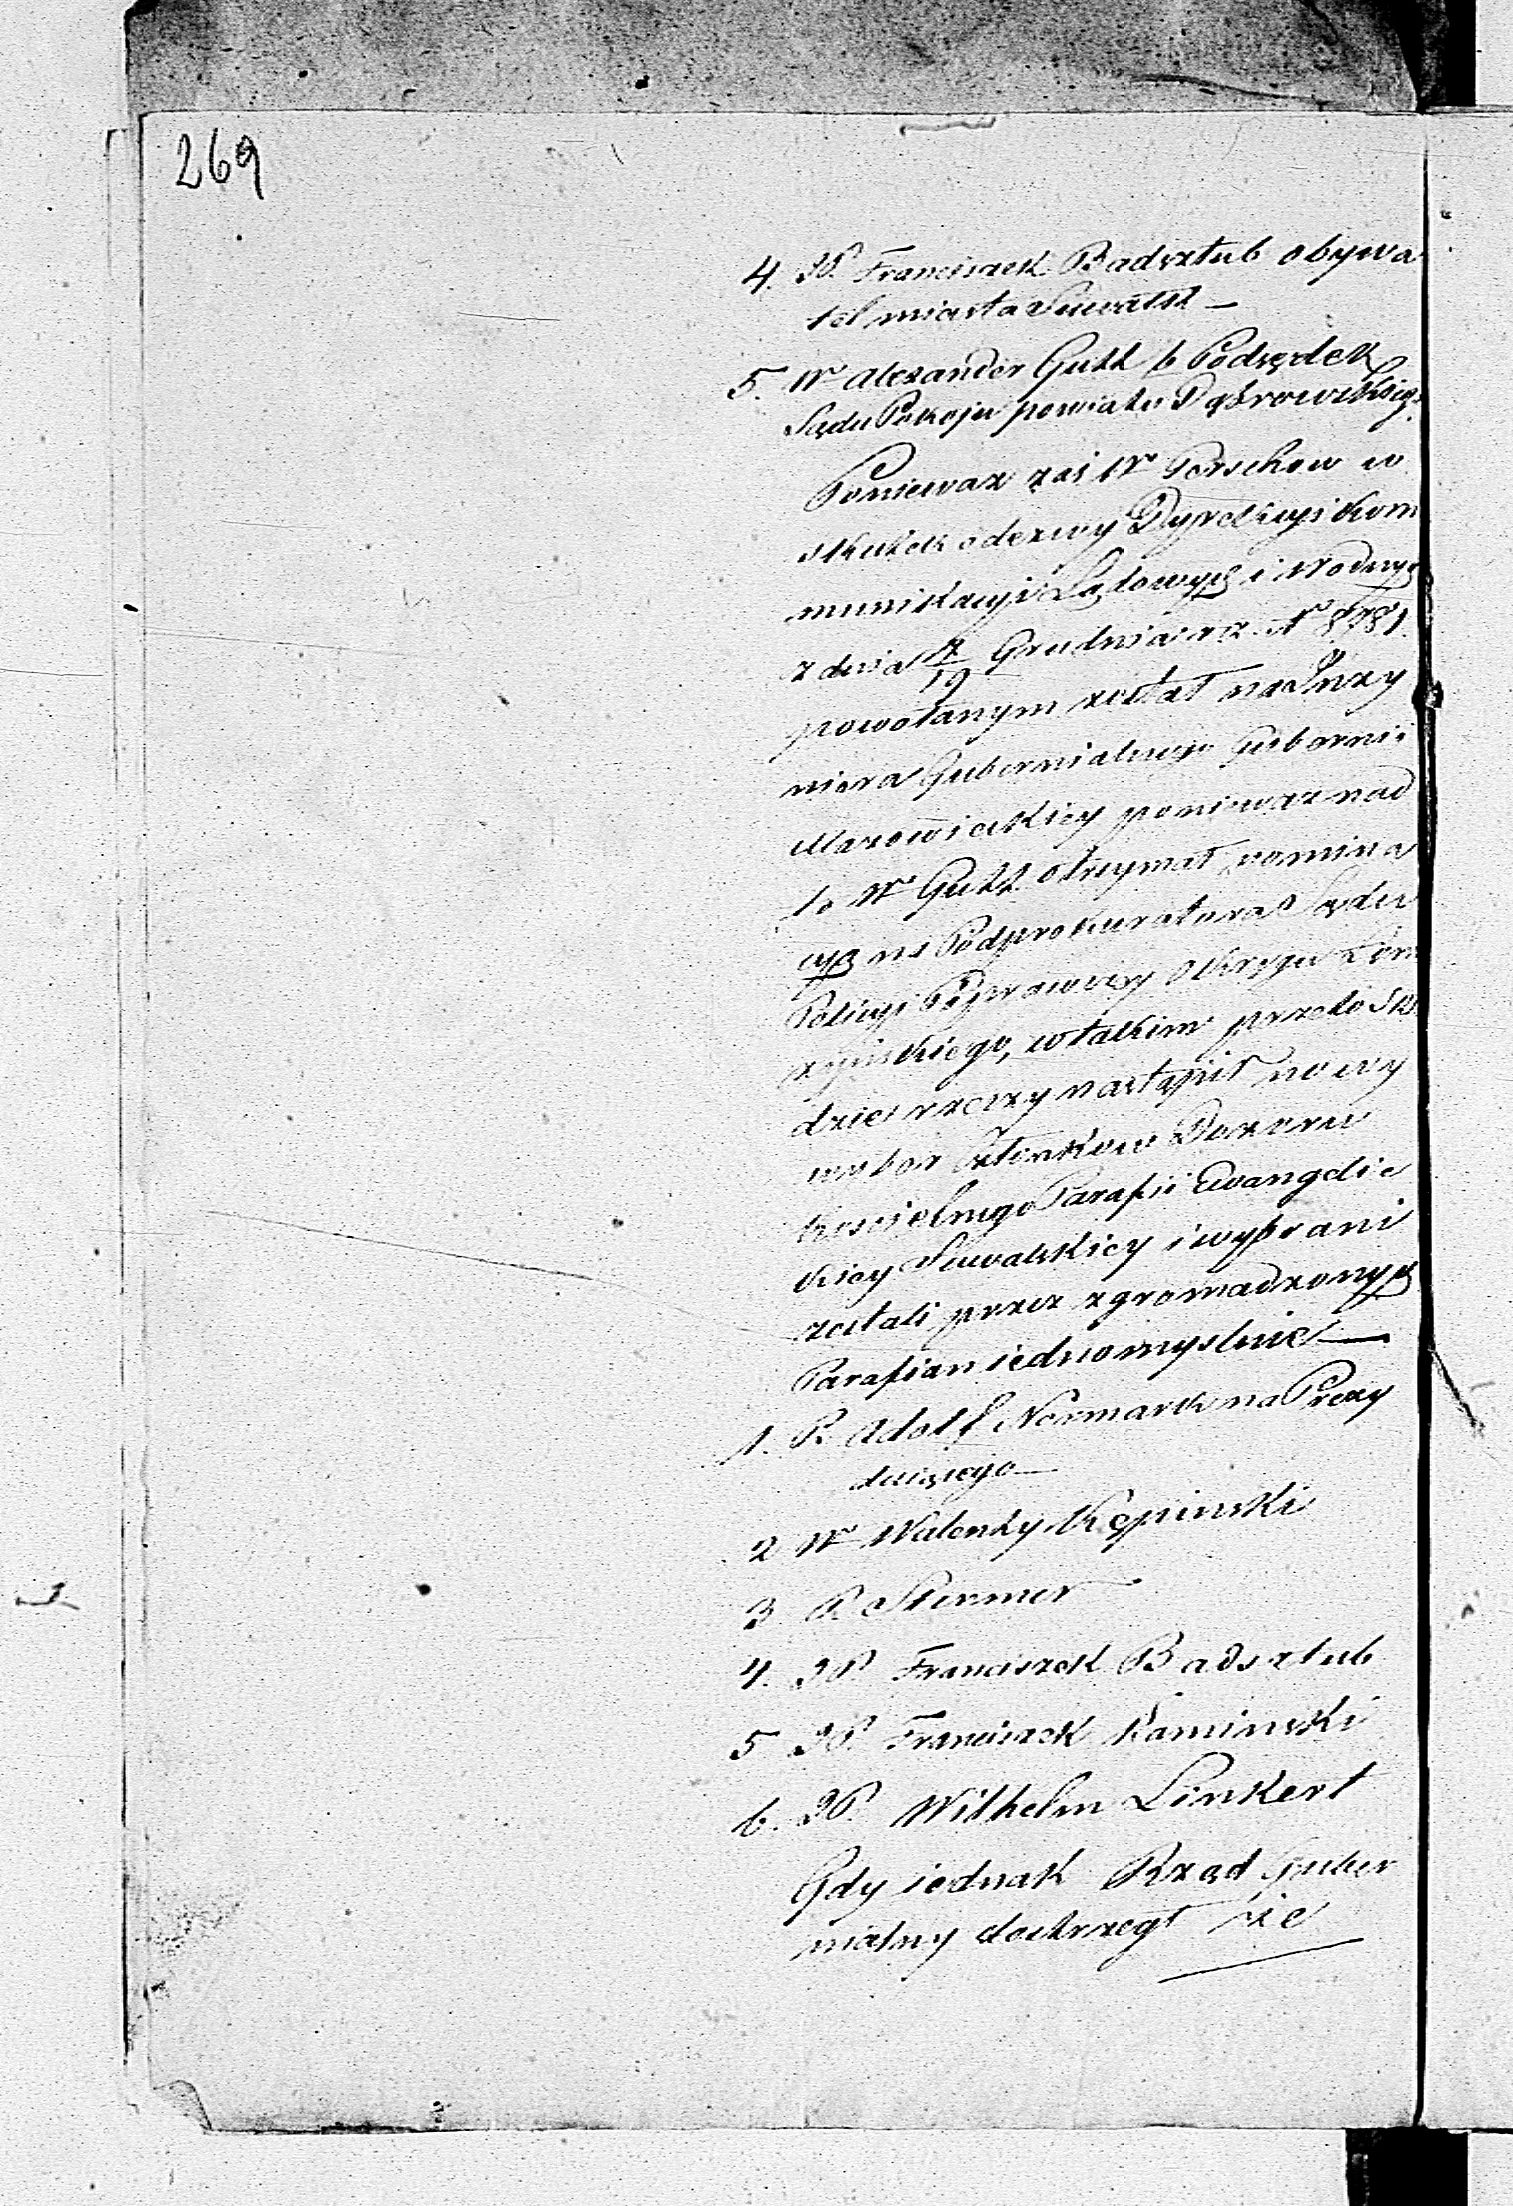 269
4. JP. Franciszek Badsztub obywa
tel miasta Suwałk —
5. Wr Alexander Guth b Podsędek
Sądu Pokoju powiatu Dąbrowskieg.
Poniewaz zaś Wr Perschow w
skutek odezwy Dyrekcyi Kom
munikacyi Lądowych i Wodnych
z dnia 7/19 Grudnia r. z. Nr 8781.
powołanym został na Inzy
niera Gubernialnego Gubernii
Mazowieckiey poniewaz nad
to Wr Guth otrzymał nomina
cyą na Podprokuratora Sądu
Policyi Poprawczey Okręgu Łom
zyńskiego, w takim przeto
dzie rzeczy nastąpił nowy
wybor Członkow Dozoru
Koscielnego Parafii Ewangelic
kiey Suwalskiey i wybrani
zostali przez zgromadzonych
Parafian iednomyslnie —
1. P. Adolf Normark na Prezy
duiącego —
2 Wr Walenty Kępinski
3 P. Stermer
4. JP Franciszek Badsztub
5 JP. Franciszek Kaminski
6. JP. Wilhelm Linkert
Gdy iednak Rząd Guber
nialny dostrzegł że